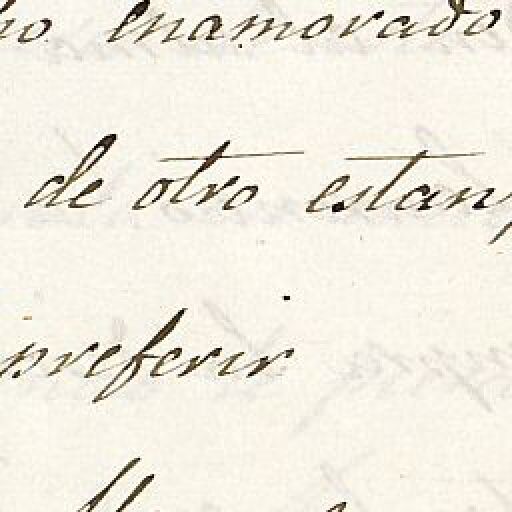 enamorado
de otro estan,
preferir